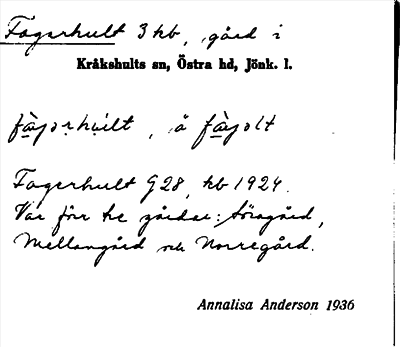 Fagerhult 3 kb, gård i
Kråkshults sn, Östra hd, Jönk. l.
fàgərhụlt, å fàgolt
Fagerhult G28, kb 1924.
Var för tre gårdar: Söragård,
Mellangård och Norregård.
Annalisa Anderson 1936